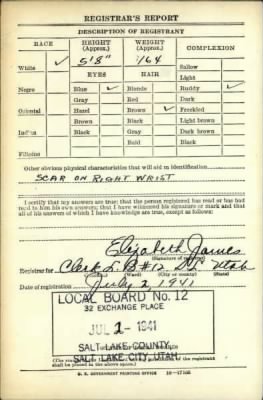 REGISTRAR'S REPORT
DESCRIPTION OF REGISTRANT
RACE HEIGHT (Approx.) WEIGHT (Approx.) COMPLEXION
White ✓ 5'8" 164 Sallow
EYES HAIR Light
Negro Blue ✓ Blonde Ruddy ✓
Gray Red Dark
Oriental Hazel Brown ✓ Freckled
Brown Black Light brown
Indian Black Gray Dark brown
Bald Black
Filipino
Other obvious physical characteristics that will aid in identification
SCAR ON RIGHT WRIST
I certify that my answers are true; that the person registered has read or has had read to him his own answers; that I have witnessed his signature or mark and that all of his answers of which I have knowledge are true, except as follows:
Elizabeth James
(Signature of registrar)
Registrar for Clerk L.B #12 Utah
Date of registration July 2, 1941
LOCAL BOARD No. 12
32 EXCHANGE PLACE
JUL 1941
SALT LAKE COUNTY
SALT LAKE CITY, UTAH
of the registrant
shall be placed in the above space.)
U. S. GOVERNMENT PRINTING OFFICE